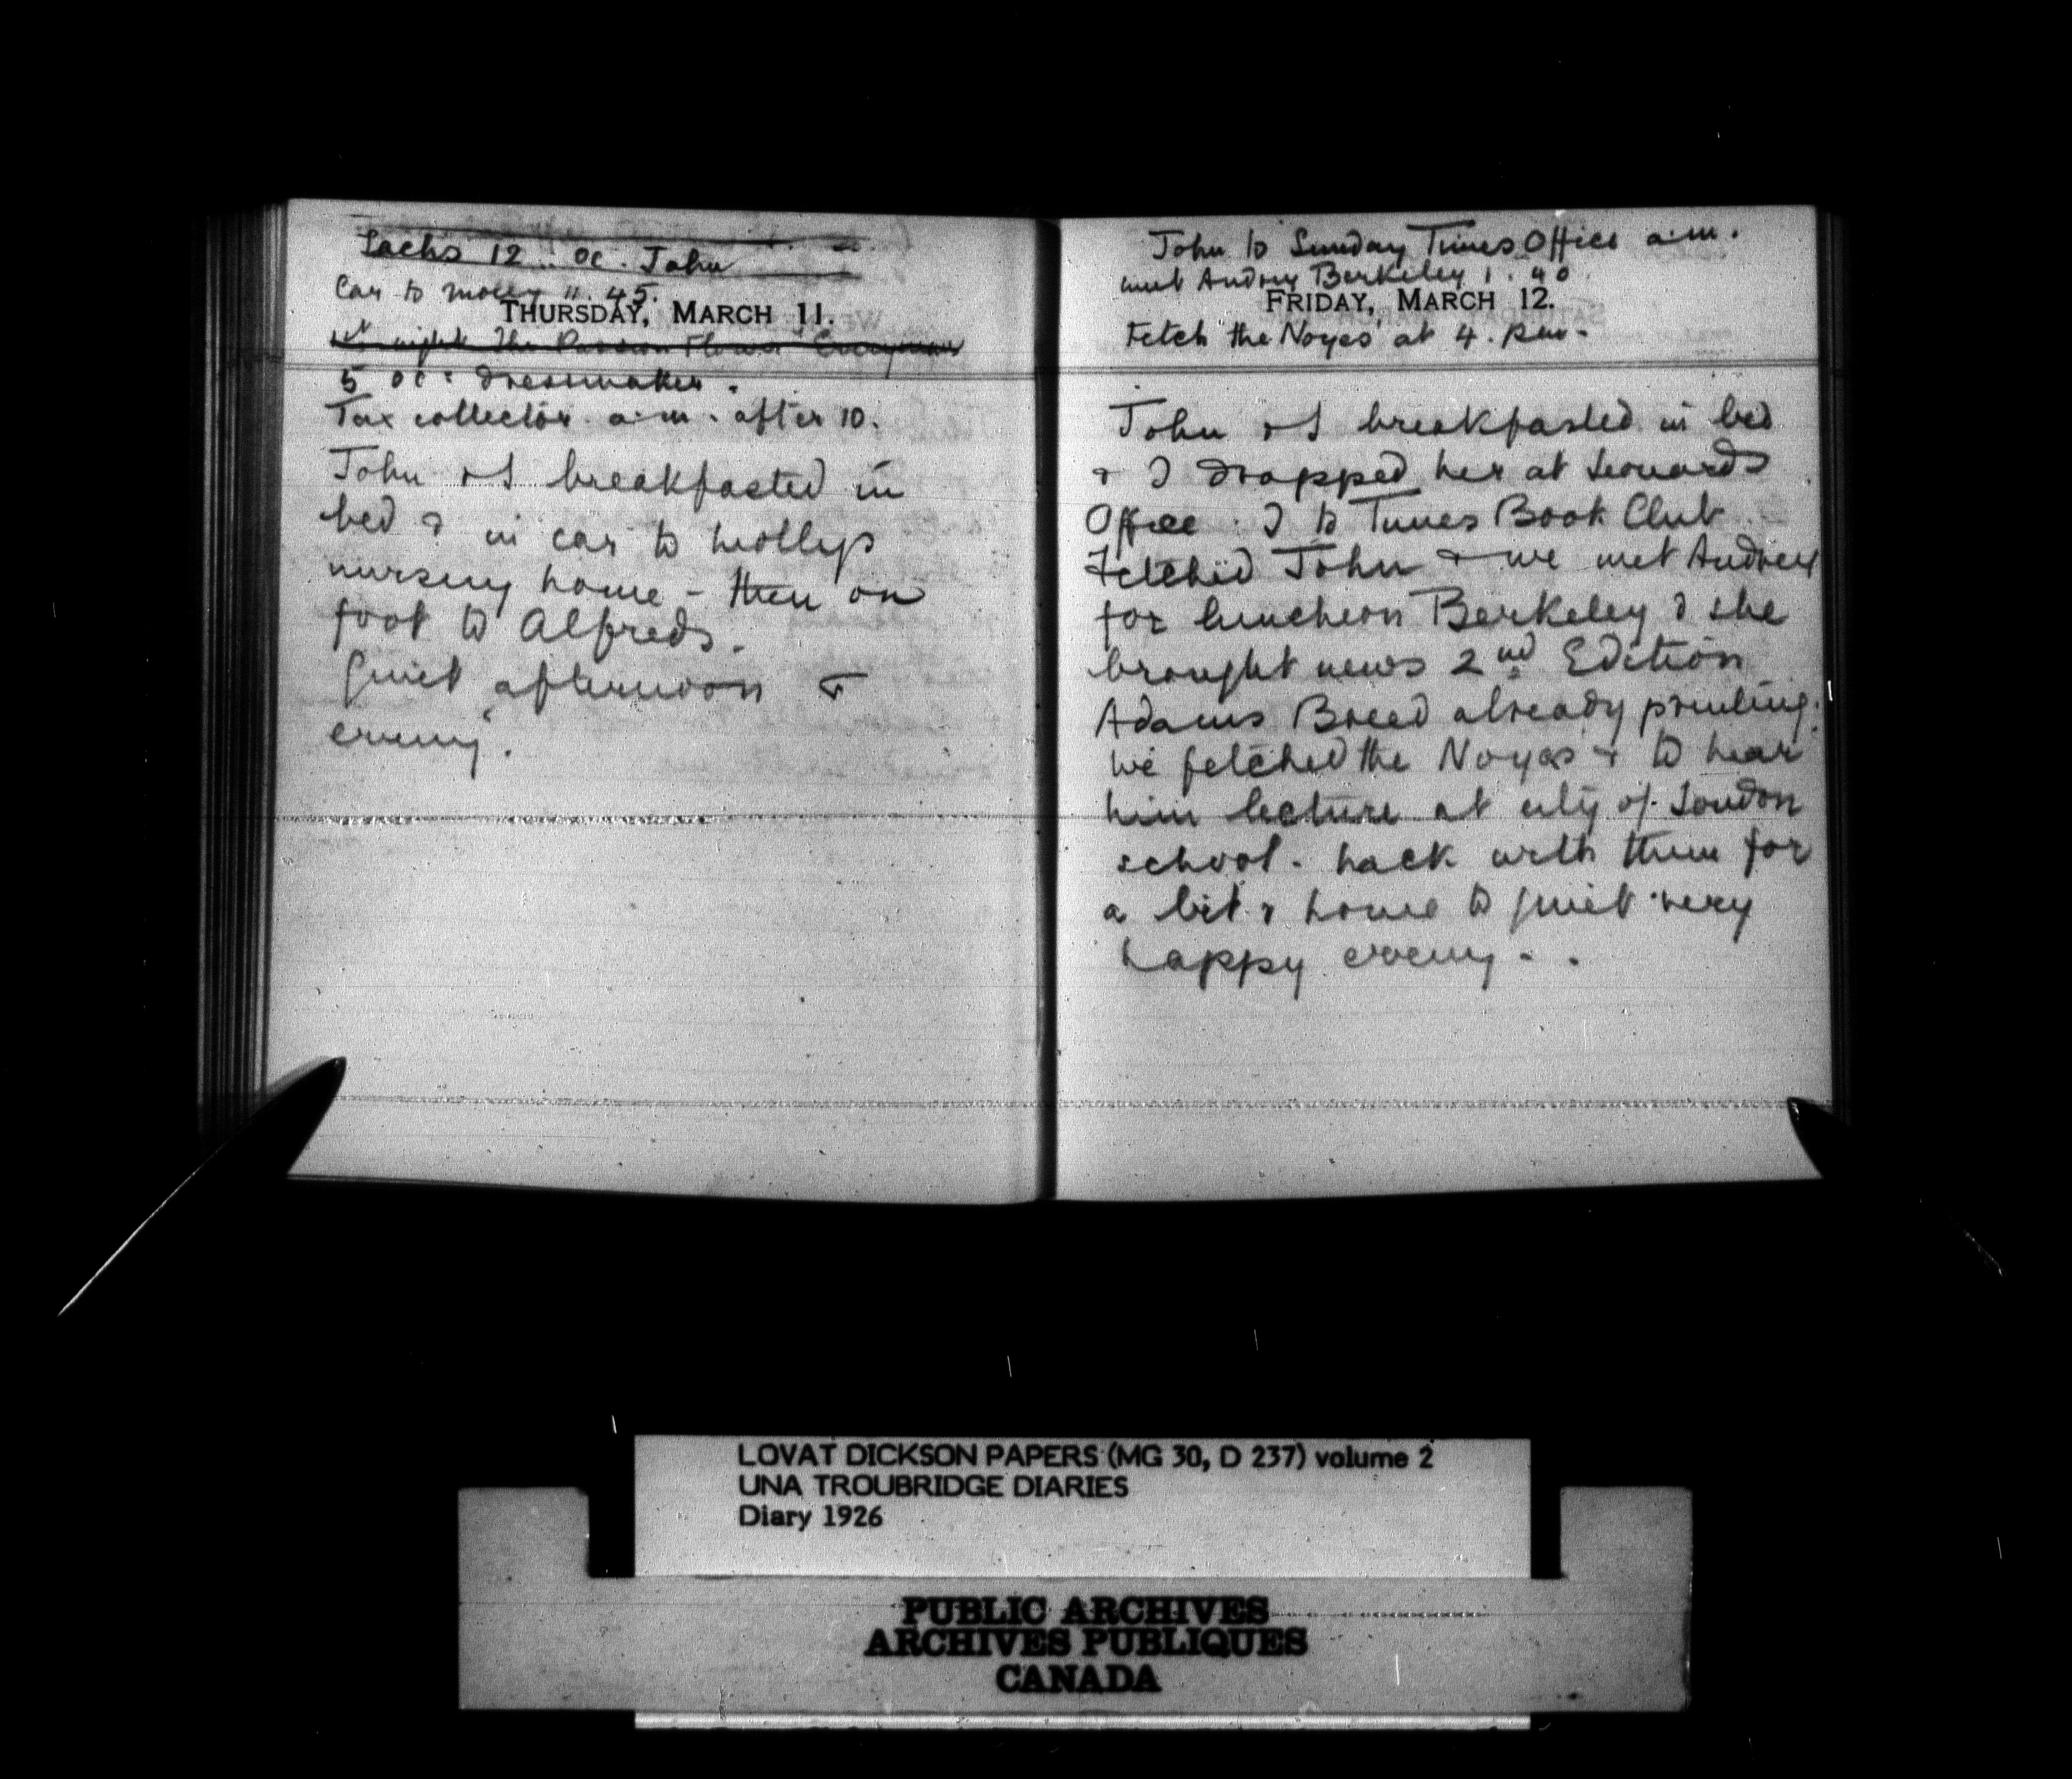 Sachs 12 oc. John
Car to Molly 11.45.
THURSDAY, MARCH 11.
night "The Passion Flower" Everyman
5 oc: dressmaker.
Tax collector a.m. after 10.
John & I breakfasted in
bed & in car to Mollys
nursing home - then on
foot to Alfreds.
Quiet afternoon &
evening.
John to Sunday Times Office a.m.
meet Audrey Berkeley 1.40
FRIDAY, MARCH 12.
Fetch the Noyes at 4. p.m.
John & I breakfasted in bed
& I dropped her at Leonards
Office. I to Times Book Club
Fetched John & we met Audrey
for luncheon Berkeley & she
brought news 2nd Edition
Adams Breed already printing.
We fetched the Noyes & to hear
him lecture at city of London
school. back with them for
a bit & home to quiet very
happy evening..
LOVAT DICKSON PAPERS (MG 30, D 237) volume 2
UNA TROUBRIDGE DIARIES
Diary 1926
PUBLIC ARCHIVES
ARCHIVES PUBLIQUES
CANADA